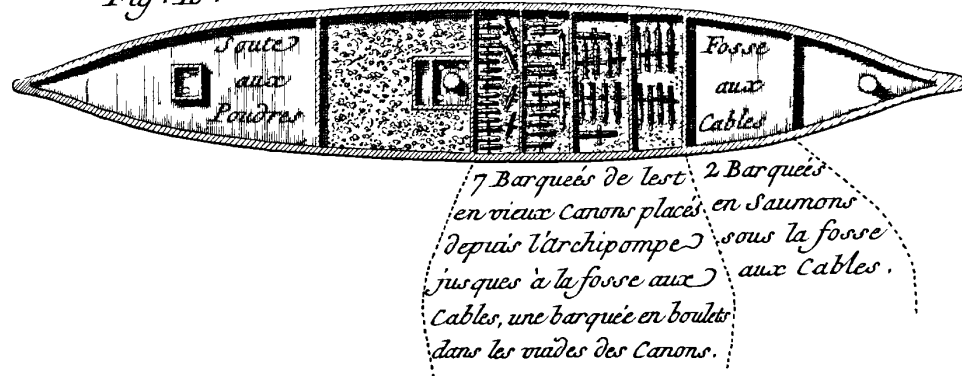 Soute
aux
Poudres
Fosse
aux
Cables
7 Barqueés de lest
en vieux Canons placés
depuis l'Archipompe
jusques à la fosse aux
Cables, une barquée en boulets
dans les vuides des Canons.
2 Barqueés
en Saumons
sous la fosse
aux Cables.